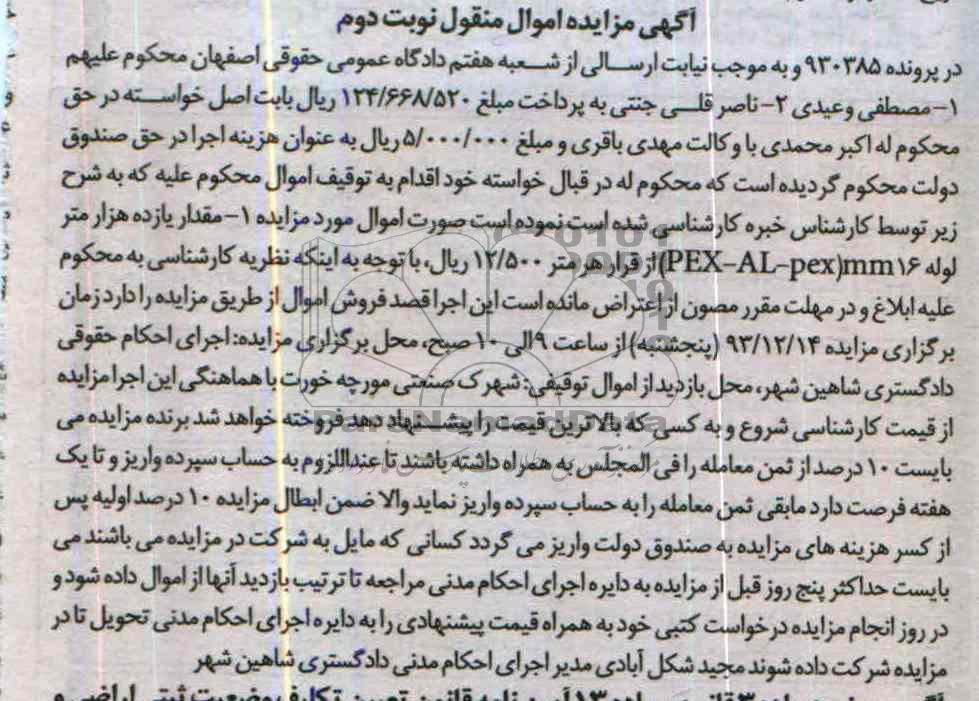 آگهی مزایده اموال منقول نوبت دوم
در پرونده ۹۳۰۳۸۵ و به موجب نیابت ارسالی از شعبه هفتم دادگاه عمومی حقوقی اصفهان محکوم علیهم
۱-مصطفی وعیدی ۲-ناصر قلی جنتی به پرداخت مبلغ ۱۲۴/۶۶۸/۵۲۰ ریال بابت اصل خواسته در حق
محکوم له اکبر محمدی با وکالت مهدی باقری و مبلغ ۵/۰۰۰/۰۰۰ ریال به عنوان هزینه اجرا در حق صندوق
دولت محکوم گردیده است که محکوم له در قبال خواسته خود اقدام به توقیف اموال محکوم علیه که به شرح
زیر توسط کارشناس خبره کارشناسی شده است نموده است صورت اموال مورد مزایده ۱-مقدار یازده هزار متر
لوله ۱۶mm(PEX-AL-pex) از قرار هر متر ۱۲/۵۰۰ ریال، با توجه به اینکه نظریه کارشناسی به محکوم
علیه ابلاغ و در مهلت مقرر مصون از اعتراض مانده است این اجرا قصد فروش اموال از طریق مزایده را دارد زمان
برگزاری مزایده ۹۳/۱۲/۱۴ (پنجشنبه) از ساعت ۹ الی ۱۰ صبح، محل برگزاری مزایده: اجرای احکام حقوقی
دادگستری شاهین شهر، محل بازدید از اموال توقیفی: شهرک صنعتی مورچه خورت با هماهنگی این اجرا مزایده
از قیمت کارشناسی شروع و به کسی که بالاترین قیمت را پیشنهاد دهد فروخته خواهد شد برنده مزایده می
بایست ۱۰ درصد از ثمن معامله را فی المجلس به همراه داشته باشند تا عنداللزوم به حساب سپرده واریز و تا یک
هفته فرصت دارد مابقی ثمن معامله را به حساب سپرده واریز نماید والا ضمن ابطال مزایده ۱۰ درصد اولیه پس
از کسر هزینه های مزایده به صندوق دولت واریز می گردد کسانی که مایل به شرکت در مزایده می باشند می
بایست حداکثر پنج روز قبل از مزایده به دایره اجرای احکام مدنی مراجعه تا ترتیب بازدید آنها از اموال داده شود و
در روز انجام مزایده درخواست کتبی خود به همراه قیمت پیشنهادی را به دایره اجرای احکام مدنی تحویل تا در
مزایده شرکت داده شوند مجید شکل آبادی مدیر اجرای احکام مدنی دادگستری شاهین شهر
ParsNamadData